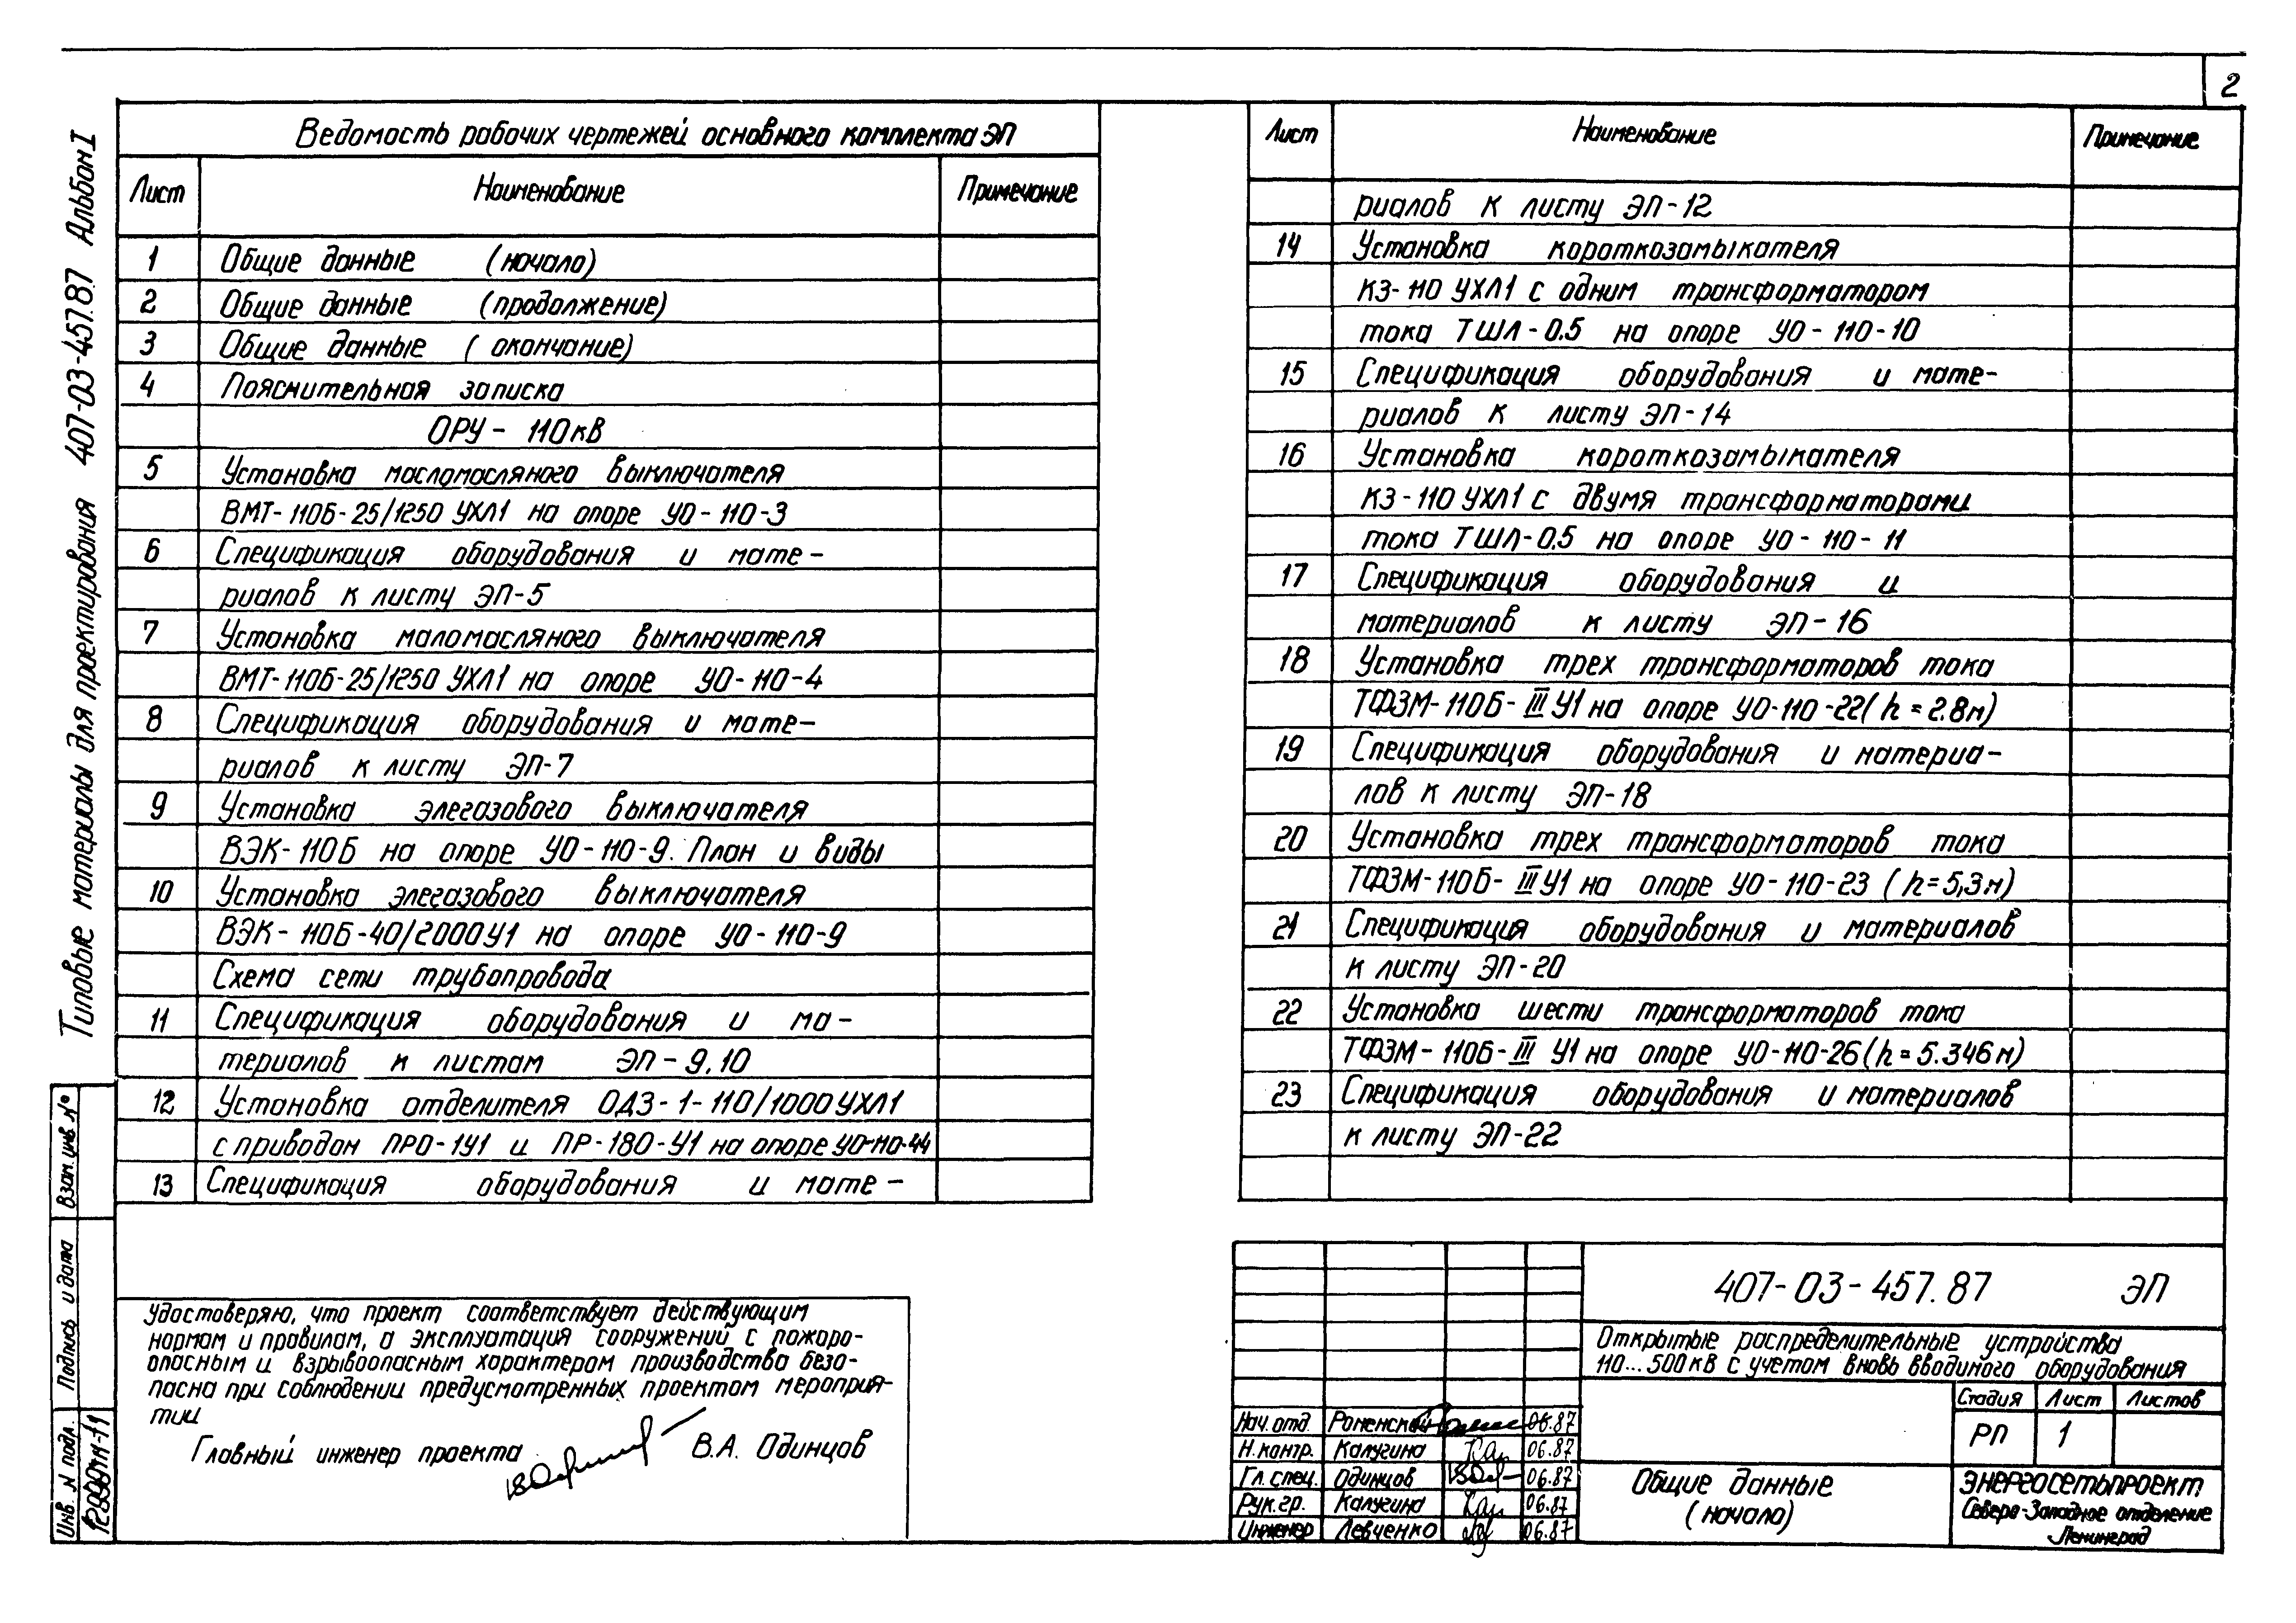 2
Типовые материалы для проектирования 407-03-457.87 Альбом I
Ведомость рабочих чертежей основного комплекта ЭП
Лист Наименование Примечание
1 Общие данные (начало)
2 Общие данные (продолжение)
3 Общие данные (окончание)
4 Пояснительная записка
ОРУ - 110кВ
5 Установка масломасляного выключателя
ВМТ-110Б-25/1250 УХЛ1 на опоре УО-110-3
6 Спецификация оборудования и мате-
риалов к листу ЭП-5
7 Установка маломасляного выключателя
ВМТ-110Б-25/1250 УХЛ1 на опоре УО-110-4
8 Спецификация оборудования и мате-
риалов к листу ЭП-7
9 Установка элегазового выключателя
ВЭК-110Б на опоре УО-110-9. План и виды
10 Установка элегазового выключателя
ВЭК-110Б-40/2000У1 на опоре УО-110-9
Схема сети трубопровода
11 Спецификация оборудования и ма-
териалов к листам ЭП-9,10
12 Установка отделителя ОДЗ-1-110/1000УХЛ1
с приводом ПРО-1У1 и ПР-180-У1 на опоре УО-110-44
13 Спецификация оборудования и мате-
Лист Наименование Примечание
риалов к листу ЭП-12
14 Установка короткозамыкателя
КЗ-110 УХЛ1 с одним трансформатором
тока ТШЛ-0.5 на опоре УО-110-10
15 Спецификация оборудования и мате-
риалов к листу ЭП-14
16 Установка короткозамыкателя
КЗ-110 УХЛ1 с двумя трансформаторами
тока ТШЛ-0.5 на опоре УО-110-11
17 Спецификация оборудования и
материалов к листу ЭП-16
18 Установка трех трансформаторов тока
ТФЗМ-110Б-III У1 на опоре УО-110-22 (h=2.8м)
19 Спецификация оборудования и материа-
лов к листу ЭП-18
20 Установка трех трансформаторов тока
ТФЗМ-110Б-III У1 на опоре УО-110-23 (h=5,3м)
21 Спецификация оборудования и материалов
к листу ЭП-20
22 Установка шести трансформаторов тока
ТФЗМ-110Б-III У1 на опоре УО-110-26 (h=5.346м)
23 Спецификация оборудования и материалов
к листу ЭП-22
Взам.инв.№
Подпись и дата
Инв. N подл.
Удостоверяю, что проект соответствует действующим
нормам и правилам, а эксплуатация сооружений с пожаро-
опасным и взрывоопасным характером производства безо-
пасна при соблюдении предусмотренных проектом мероприя-
тий
Главный инженер проекта В.А. Одинцов
407-03-457.87 ЭП
Открытые распределительные устройства
110...500кВ с учетом вновь вводимого оборудования
Стадия Лист Листов
РП 1
Нач.отд. Роменский 06.87
Н.контр. Калугина 06.87
Гл.спец. Одинцов 06.87
Рук.гр. Калугина 06.87
Инженер Левченко 06.87
Общие данные
(начало)
ЭНЕРГОСЕТЬПРОЕКТ
Северо-Западное отделение
Ленинград